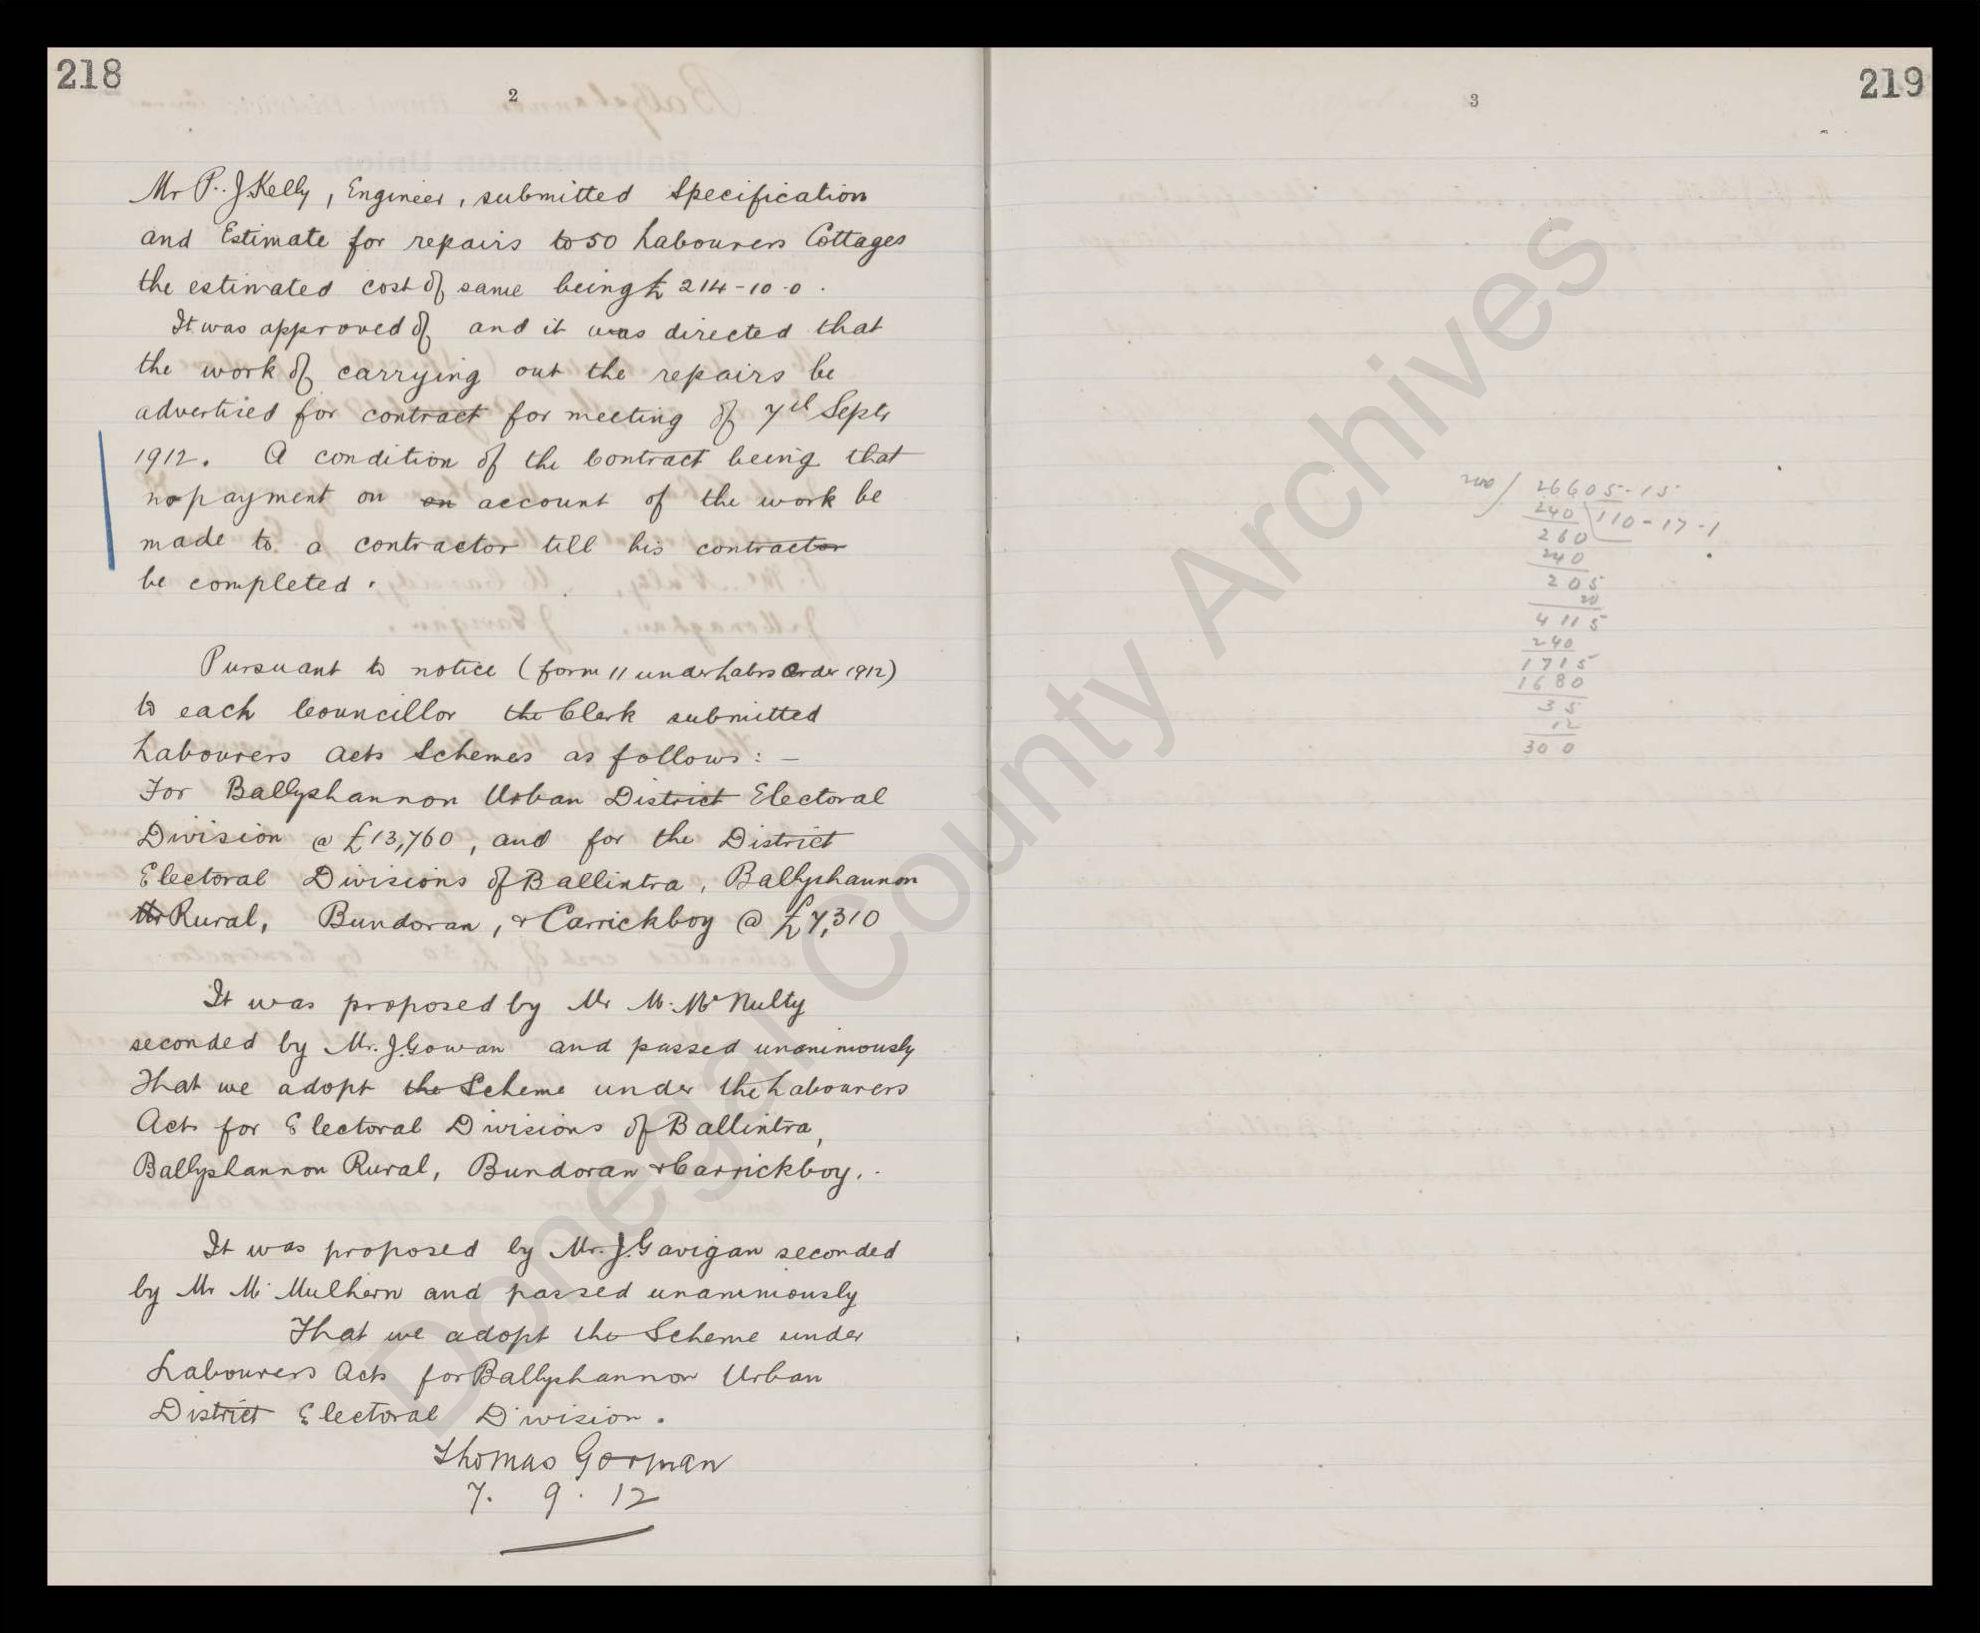 218
2
Mr P. J. Kelly, Engineer, submitted Specification
and Estimate for repairs to 50 Labourers Cottages
the estimated cost of same being £214-10-0.
It was approved of and it was directed that
the work of carrying out the repairs be
advertised for contract for meeting of 7th Septr
1912. A condition of the Contract being that
no payment on on account of the work be
made to a contractor till his contractor
be completed.
Pursuant to notice (form 11 under Labrs Order 1912)
to each Councillor the Clerk submitted
Labourers Acts Schemes as follows: -
For Ballyshannon Urban District Electoral
Division @ £13,760, and for the District
Electoral Divisions of Ballintra, Ballyshannon
Rural, Bundoran, & Carrickboy @ £7,310
It was proposed by Mr M. McNulty
seconded by Mr. J. Gowan and passed unanimously
That we adopt the Scheme under the Labourers
Acts for Electoral Divisions of Ballintra,
Ballyshannon Rural, Bundoran & Carrickboy.
It was proposed by Mr. J. Gavigan seconded
by Mr M. Mulhern and passed unanimously
That we adopt the Scheme under
Labourers Acts for Ballyshannon Urban
District Electoral Division.
Thomas Gorman
7. 9. 12
219
3
26605-15
240 110-17-1
260
240
205
20
4115
240
1715
1680
35
12
300
Donegal County Archives